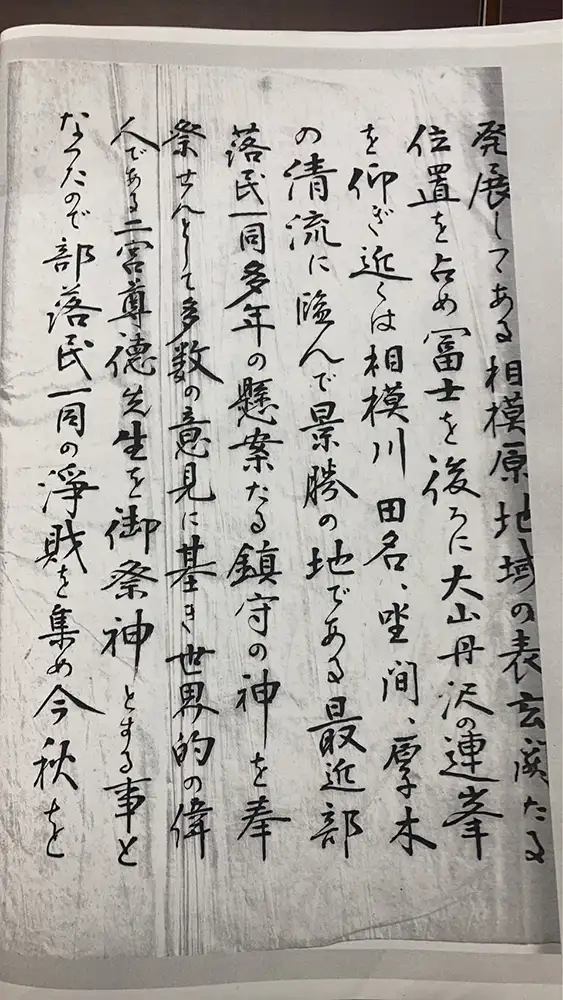 発展してある相模原地域の表玄関たる
位置を占め冨士を後ろに大山丹沢の連峯
を仰ぎ近くは相模川田名、坐間、厚木
の清流に臨んで景勝の地である最近部
落民一同多年の懸案たる鎮守の神を奉
祭せんとして多数の意見に基き世界的の偉
人である二宮尊徳先生を御祭神とする事と
なつたので部落民一同の淨財を集め今秋を